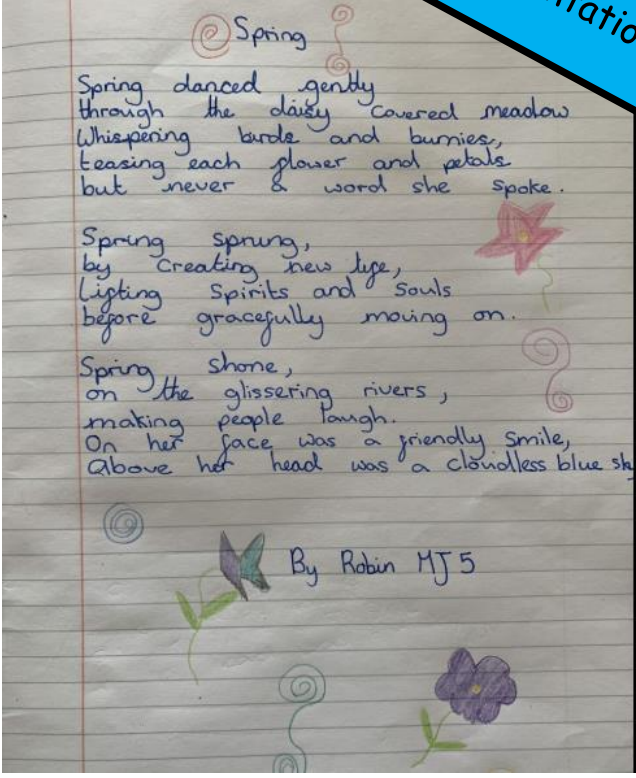 Spring
Spring danced gently
through the daisy covered meadow
Whispering birds and bunnies,
teasing each flower and petals
but never a word she spoke.
Spring sprung,
by creating new life,
Lifting Spirits and Souls
before gracefully moving on.
Spring shone,
on the glissering rivers,
making people laugh.
On her face was a friendly smile,
Above her head was a cloudless blue
By Robin MJ5